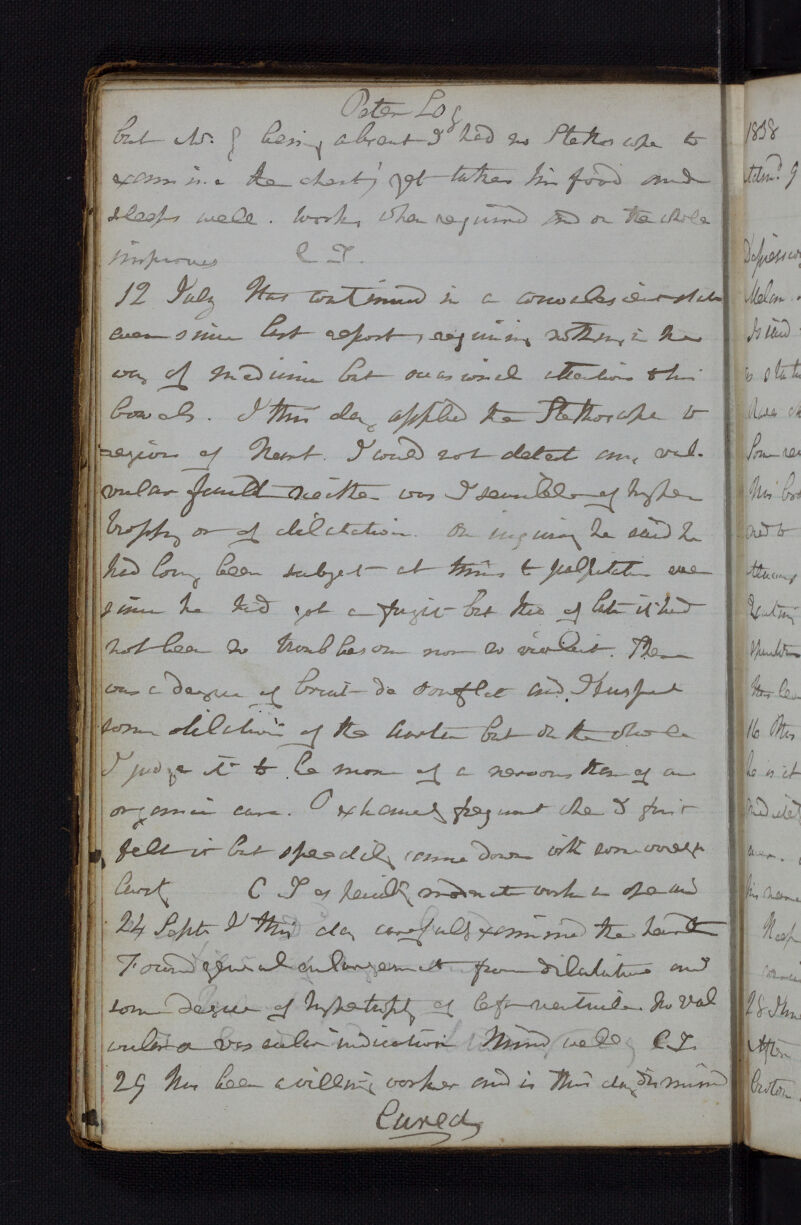 Peter Log
but Mr. G being absent I had no Stethoscope to
examine the chest; yet takes his food and
sleeps well. Works when required and on the whole
improves C T.
12 July Has continued in a convalescent state
ever since last report, requiring nothing in the
way of medicine but occasional attention to his
bowels. I this day applied the Stethoscope to
region of Heart. I could not detect any val-
vular fault neither was I sensible of hyper
trophy or of dilatation. On inquiry he said he
had long been subject at times to palpitation ever
since he had got a fright but that of late it had
not been so troublesome nor so violent. There
was a degree of bruit de soufflet and I suspect
some dilatation of the Aorta but on the whole
I judge it to be more of a nervous than of an
organic case. P extremely frequent when I first
felt it but speedily came down with some
C T as
24 Septr I this day carefully examined the heart
Found general enlargement from dilatation and
some degree of hypertrophy of left ventricle. No val
vular or vascular indication Mind well C T.
29 Has been a willing worker and is this day dismissed
Cured
1838
Depression
Melan
16 this
he is at
his name
28 June
After